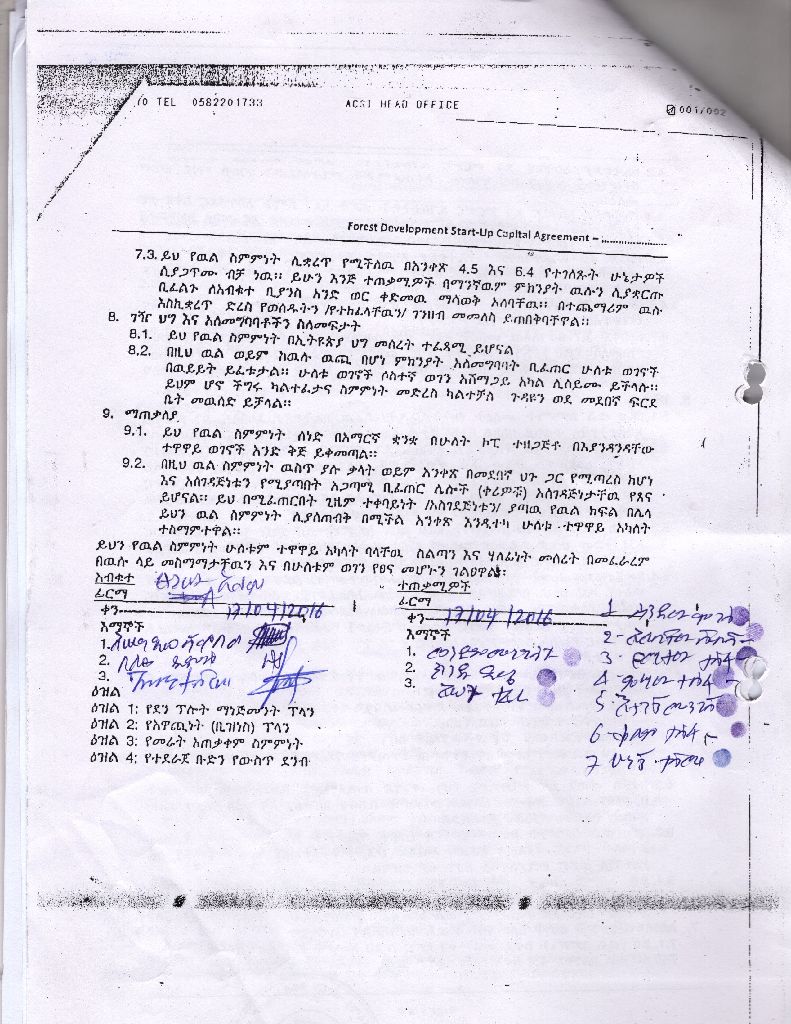 TEL 0582201733 ACSI HEAD OFFICE 001/002
Forest Development Start-Up Capital Agreement –
7.3. ይህ የዉል ስምምነት ሊቋረጥ የሚችለዉ በአንቀጽ 4.5 እና 6.4 የተገለጹት ሁኔታዎች
ሲያጋጥሙ ብቻ ነዉ፡፡ ይሁን እንጅ ተጠቃሚዎች በማንኛዉም ምክንያት ዉሉን ሲያቋርጡ
ቢፈልጉ ለአብቁተ ቢያንስ አንድ ወር ቀድመዉ ማሳወቅ አለባቸዉ፡፡ በተጨማሪም ዉሉ
እስኪቋረጥ ድረስ የወሰዱትን /የተከፈላቸዉን/ ገንዘብ መመለስ ይጠበቅባቸዋል፡፡
8. ገዥ ህግ እና አለመግባባቶችን ስለመፍታት
8.1. ይህ የዉል ስምምነት በኢትዩጵያ ህግ መሰረት ተፈጻሚ ይሆናል
8.2. በዚህ ዉል ወይም ከዉሉ ዉጪ በሆነ ምክንያት አለመግባባት ቢፈጠር ሁለቱ ወገኖች
በዉይይት ይፈቱታል፡፡ ሁለቱ ወገኖች ሶስተኛ ወገን አሸማጋይ አካል ሊሰይሙ ይችላሉ፡፡
ይህም ሆኖ ችግሩ ካልተፈታና ስምምነት መድረስ ካልተቻለ ጉዳዩን ወደ መደበኛ ፍርድ
ቤት መዉሰድ ይቻላል፡፡
9. ማጠቃለያ
9.1. ይህ የዉል ስምምነት ሰነድ በአማርኛ ቋንቋ በሁለት ኮፒ ተዘጋጅቶ በእያንዳንዳቸው
ተዋዋይ ወገኖች አንድ ቅጅ ይቀመጣል፡፡
9.2. በዚህ ዉል ስምምነት ዉስጥ ያሉ ቃላት ወይም አንቀጽ በመደበኛ ህጉ ጋር የሚጣረስ ከሆነ
እና አስገዳጅነቱን የሚያጣበት አጋጣሚ ቢፈጠር ሌሎች (ቀሪዎቹ) አስገዳጅነታቸዉ የጸና
ይሆናል፡፡ ይህ በሚፈጠርበት ጊዜም ተቀባይነት /አስገደጅነቱን/ ያጣዉ የዉል ክፍል በሌላ
ይህን ዉል ስምምነት ሊያስጠብቅ በሚችል አንቀጽ እንዲተካ ሁለቱ ተዋዋይ አካላት
ተስማምተዋል፡፡
ይህን የዉል ስምምነት ሁለቱም ተዋዋይ አካላት ባላቸዉ ስልጣን እና ሃላፊነት መሰረት በመፈራረም
በዉሉ ላይ መስማማታቸዉን እና በሁለቱም ወገን የፀና መሆኑን ገልፀዋል፡
አብቁተ ተጠቃሚዎች
ፊርማ ፊርማ
ቀን 17/04/2016 ቀን 17/04/2016
እማኞች እማኞች
1. 1.
2. 2.
3. 3.
ዕዝል
ዕዝል 1: የደን ፕሎት ማኔጅመንት ፕላን
ዕዝል 2: የአዋጪነት (ቢዝነስ) ፕላን
ዕዝል 3: የመሬት አጠቃቀም ስምምነት
ዕዝል 4: የተደራጀ ቡድን የውስጥ ደንብ